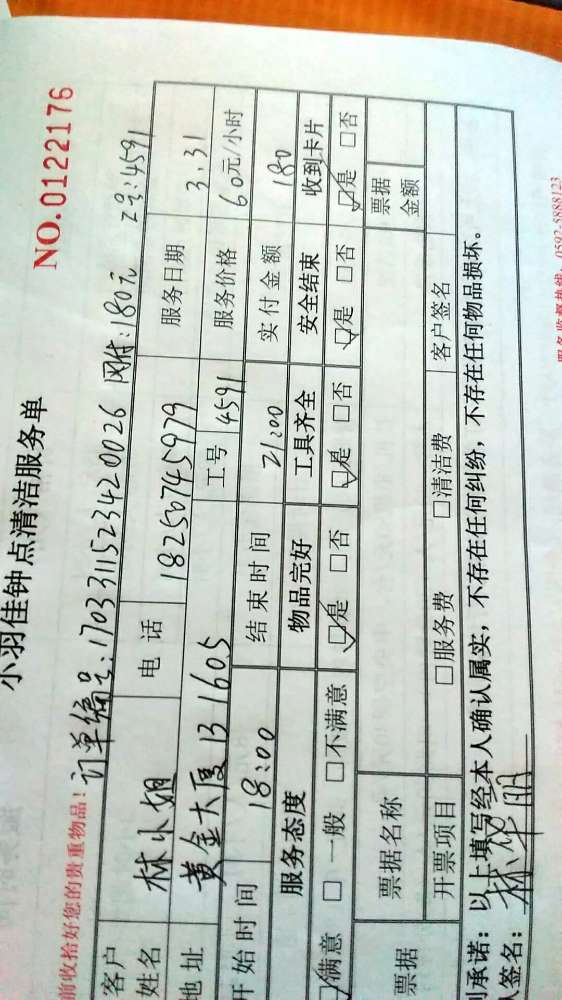 小羽佳钟点清洁服务单
NO.0122176
前收拾好您的贵重物品! 订单编号:1703311523420026 网付:180元 工号:4591
客户姓名 林小姐 电话 18250745979 服务日期 3.31
地址 黄金大厦B1605 工号 4591 服务价格 60元/小时
开始时间 18:00 结束时间 21:00 实付金额 180
服务态度 物品完好 工具齐全 安全结束 收到卡片
☑满意 □一般 □不满意 ☑是 □否 ☑是 □否 ☑是 □否 ☑是 □否
票据 票据名称 票据金额
开票项目 □服务费 □清洁费 客户签名
承诺:以上填写经本人确认属实,不存在任何纠纷,不存在任何物品损坏。
签名:
服务监督热线:0592-5888123